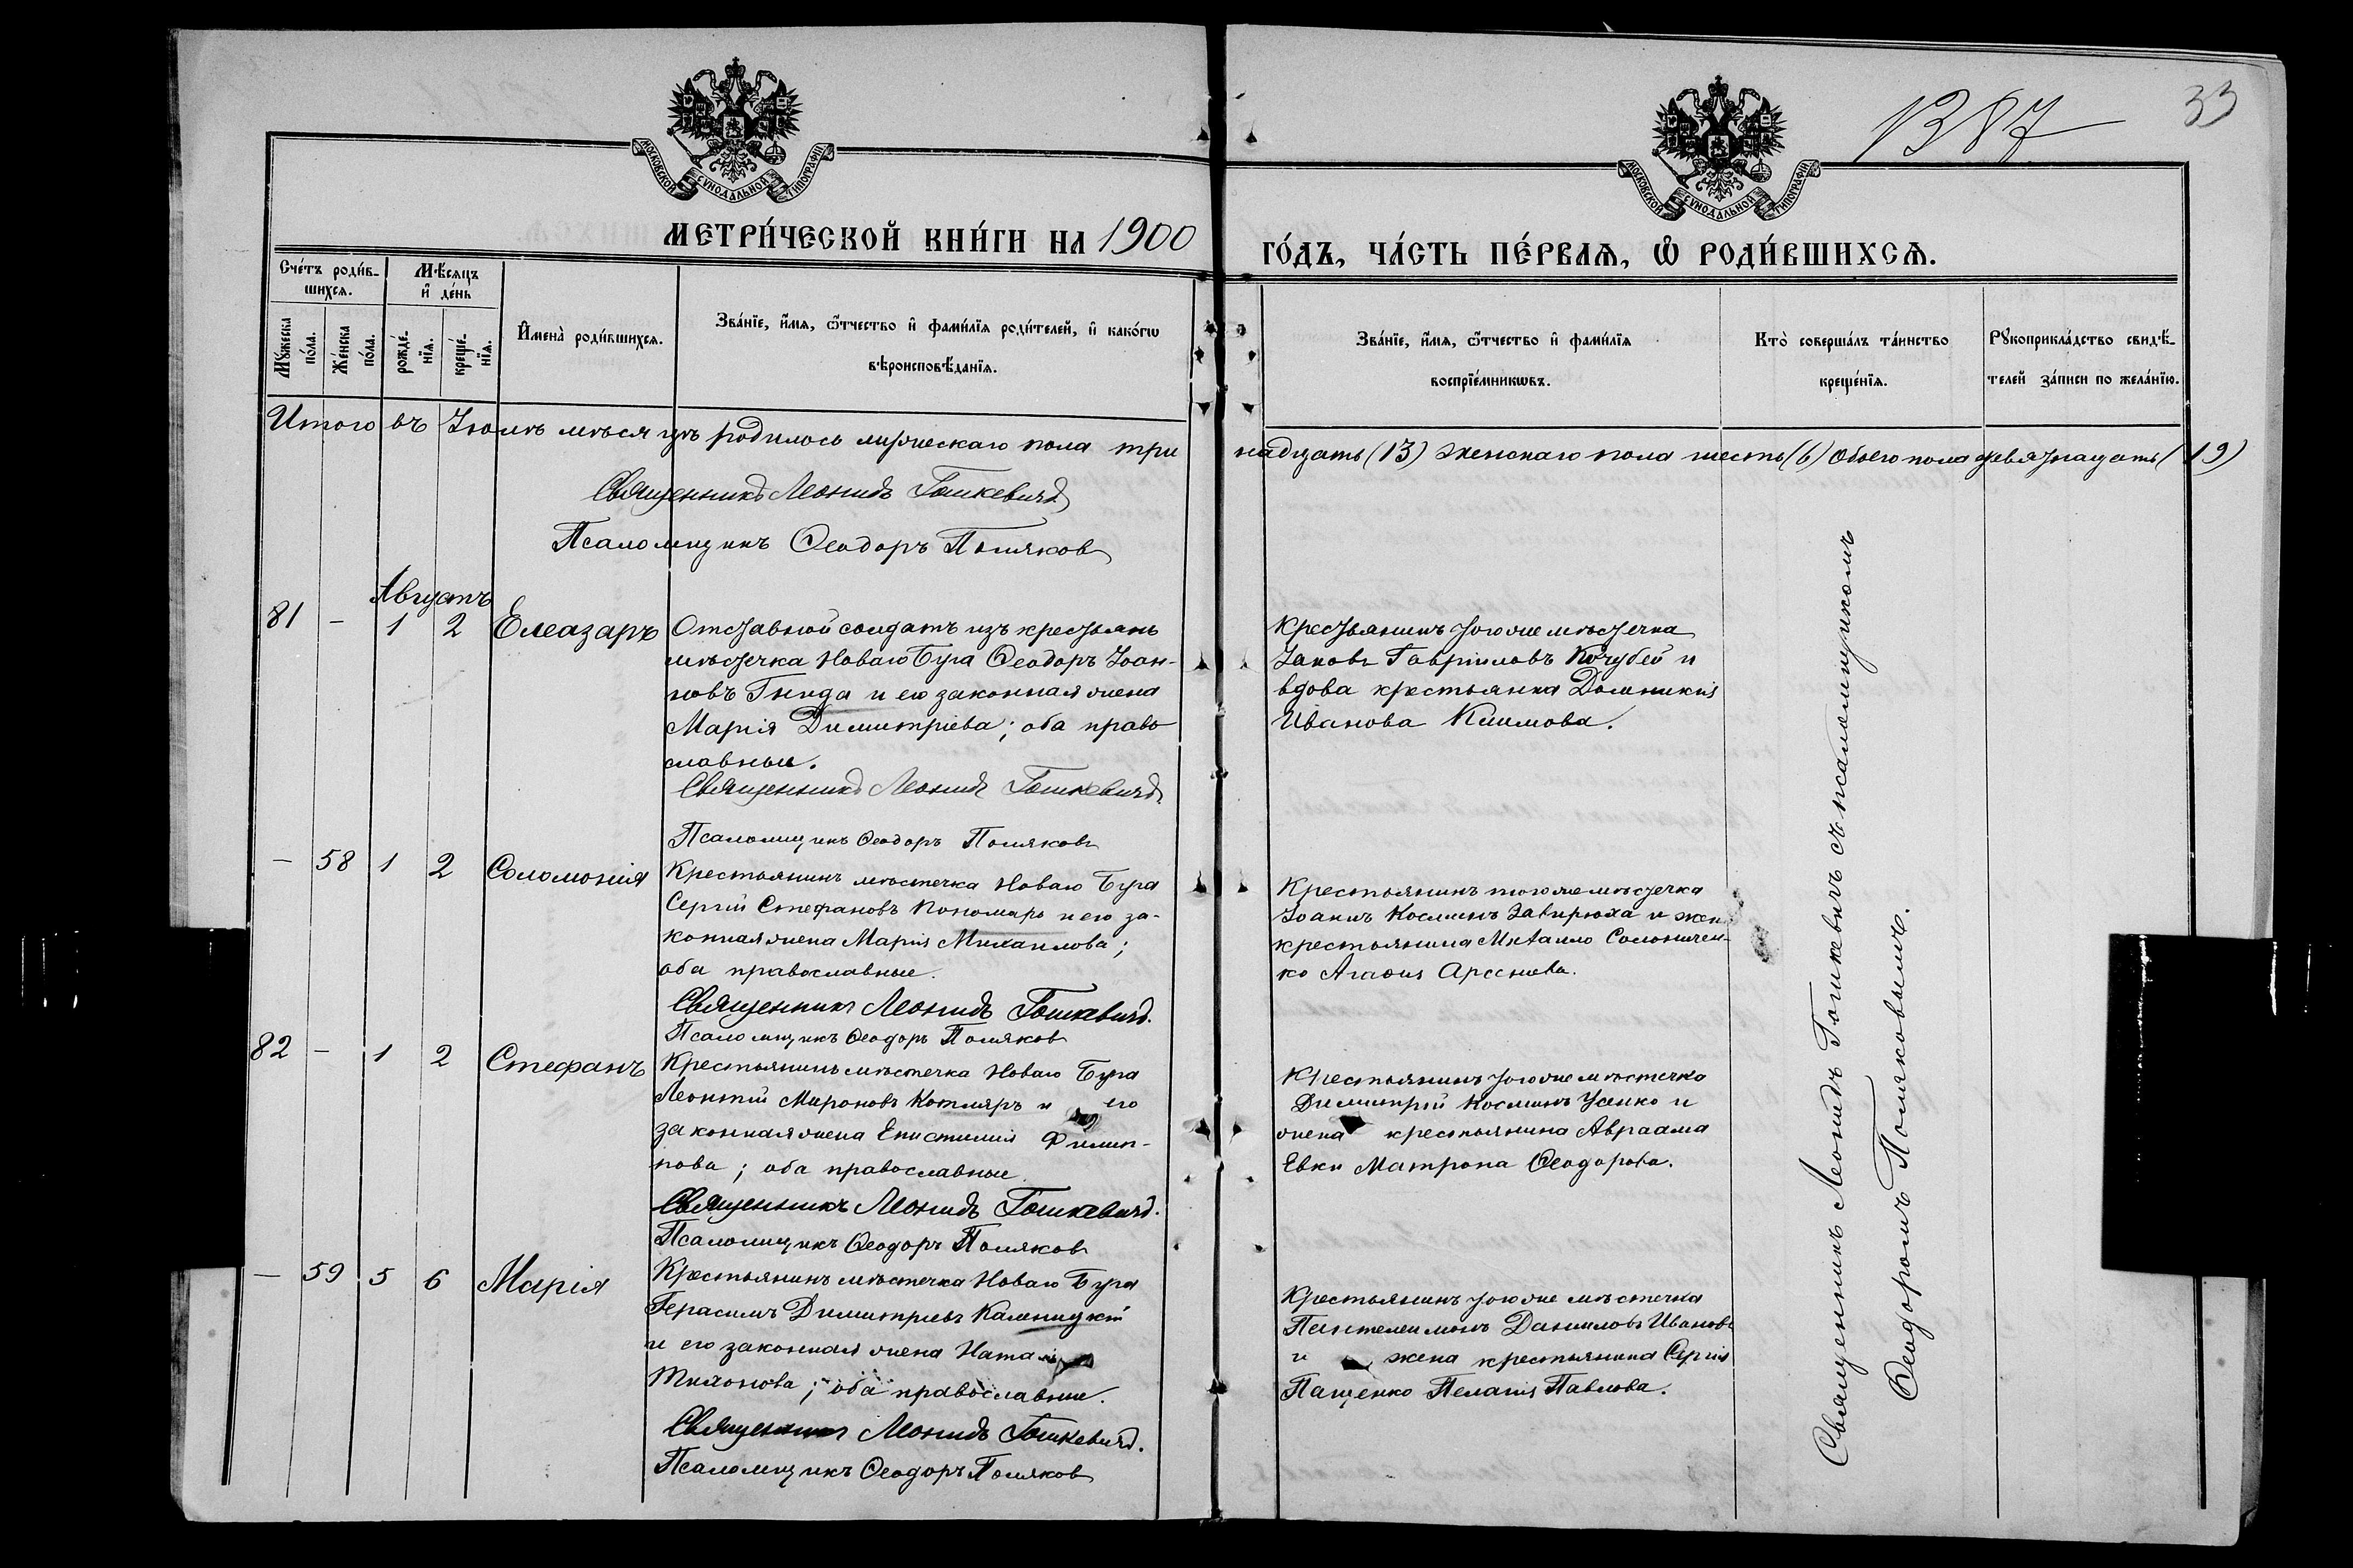 1387
33
МОСКОВСКОЙ СѴНОДАЛЬНОЙ ТИПОГРАФІИ
МОСКОВСКОЙ СѴНОДАЛЬНОЙ ТИПОГРАФІИ
МЕТРИ́ЧЕСКОЙ КНИ́ГИ НА 1900 ГО́ДЪ, ЧА́СТЬ ПЕ́РВАѦ, Ѿ РОДИ́ВШИХСѦ.
Сче́тъ роди́в-
шихсѧ.
Мѣ́сѧцъ
и҆ де́нь
Мꙋ́жеска
по́ла.
Же́нска
по́ла.
рожде́-
нїѧ.
креще́-
нїѧ.
И҆мена̀ роди́вшихсѧ.
Зва́нїе, и҆́мѧ, ѻ҆́тчество и҆ фами́лїѧ роди́телей, и҆ како́гѡ
вѣроисповѣ́данїѧ.
Зва́нїе, и҆́мѧ, ѻ҆́тчество и҆ фами́лїѧ
воспрїе́мникѡвъ.
Кто̀ соверша́лъ та́инство
креще́нїѧ.
Рꙋкоприкла́дство свидѣ́-
телей за́писи по жела́нїю.
Итого въ Іюлѣ мѣсяцѣ родилось мужескаго пола тринадцать (13) женскаго пола шесть (6) Обоего пола девятнадцать (19)
Священникъ Леонидъ Гошкевичъ
Псаломщикъ Ѳеодоръ Поляковъ
Августъ
81 - 1 2 Елеазаръ
Отставной солдатъ изъ крестьянъ
мѣстечка Новаго Буга Ѳеодоръ Іоан-
новъ Гнида и его законная жена
Марія Димитріева; оба право
славные.
Священникъ Леонидъ Гошкевичъ
Псаломщикъ Ѳеодоръ Поляковъ
Крестьянинъ того же мѣстечка
Іаковъ Гавріиловъ Кочубей и
вдова крестьянка Домникія
Иванова Климова.
- 58 1 2 Соломонія
Крестьянинъ мѣстечка Новаго Буга
Сергій Стефановъ Пономарь и его за-
конная жена Марія Михаилова;
оба православные.
Священникъ Леонидъ Гошкевичъ.
Псаломщикъ Ѳеодоръ Поляковъ
Крестьянинъ того же мѣстечка
Іоаннъ Косминъ Завирюха и жен
крестьянина Соломичен-
ко Агаѳія Арсеніева.
82 - 1 2 Стефанъ
Крестьянинъ мѣстечка Новаго Буга
Леонтій Мироновъ Котляръ и его
законная жена Епистимія Филип-
пова; оба православные
Священникъ Леонидъ Гошкевичъ.
Псаломщикъ Ѳеодоръ Поляковъ
Крестьянинъ того же мѣстечка
Димитрій Косминъ Усенко и
жена крестьянина Авраама
Евки Матрона Ѳеодорова.
- 59 5 6 Марія
Крестьянинъ мѣстечка Новаго Буга
Герасимъ Димитріевъ Калницкій
и его законная жена
Тихонова; оба православные.
Священникъ Леонидъ Гошкевичъ.
Псаломщикъ Ѳеодоръ Поляковъ
Крестьянинъ того же мѣстечка
Пантелеимонъ Даниловъ Ивановъ
и жена крестьянина Сергія
Пащенко Пелагія Павлова.
Священникъ Леонидъ Гошкевичъ съ псаломщикомъ
Ѳеодоромъ Поляковымъ.